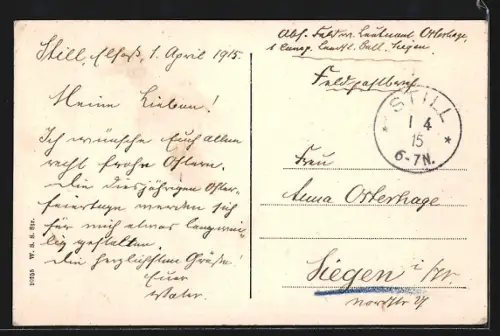 Still, Elsaß, 1. April 1915.
Meine Lieben!
Ich wünsche Euch allen
recht frohe Ostern.
Die diesjährigen Oster-
feiertage werden sich
für mich etwas langwei-
lig gestalten.
Die herzlichsten Grüße!
Euer
Vater.
W. S. S. Str.
Abs. Feldw. Leutnant Osterhage,
1 Comp. Landst. Batl. Siegen.
Feldpostbrief
STILL
1 4
15
6-7N.
Frau
Anna Osterhage
Siegen i/W.